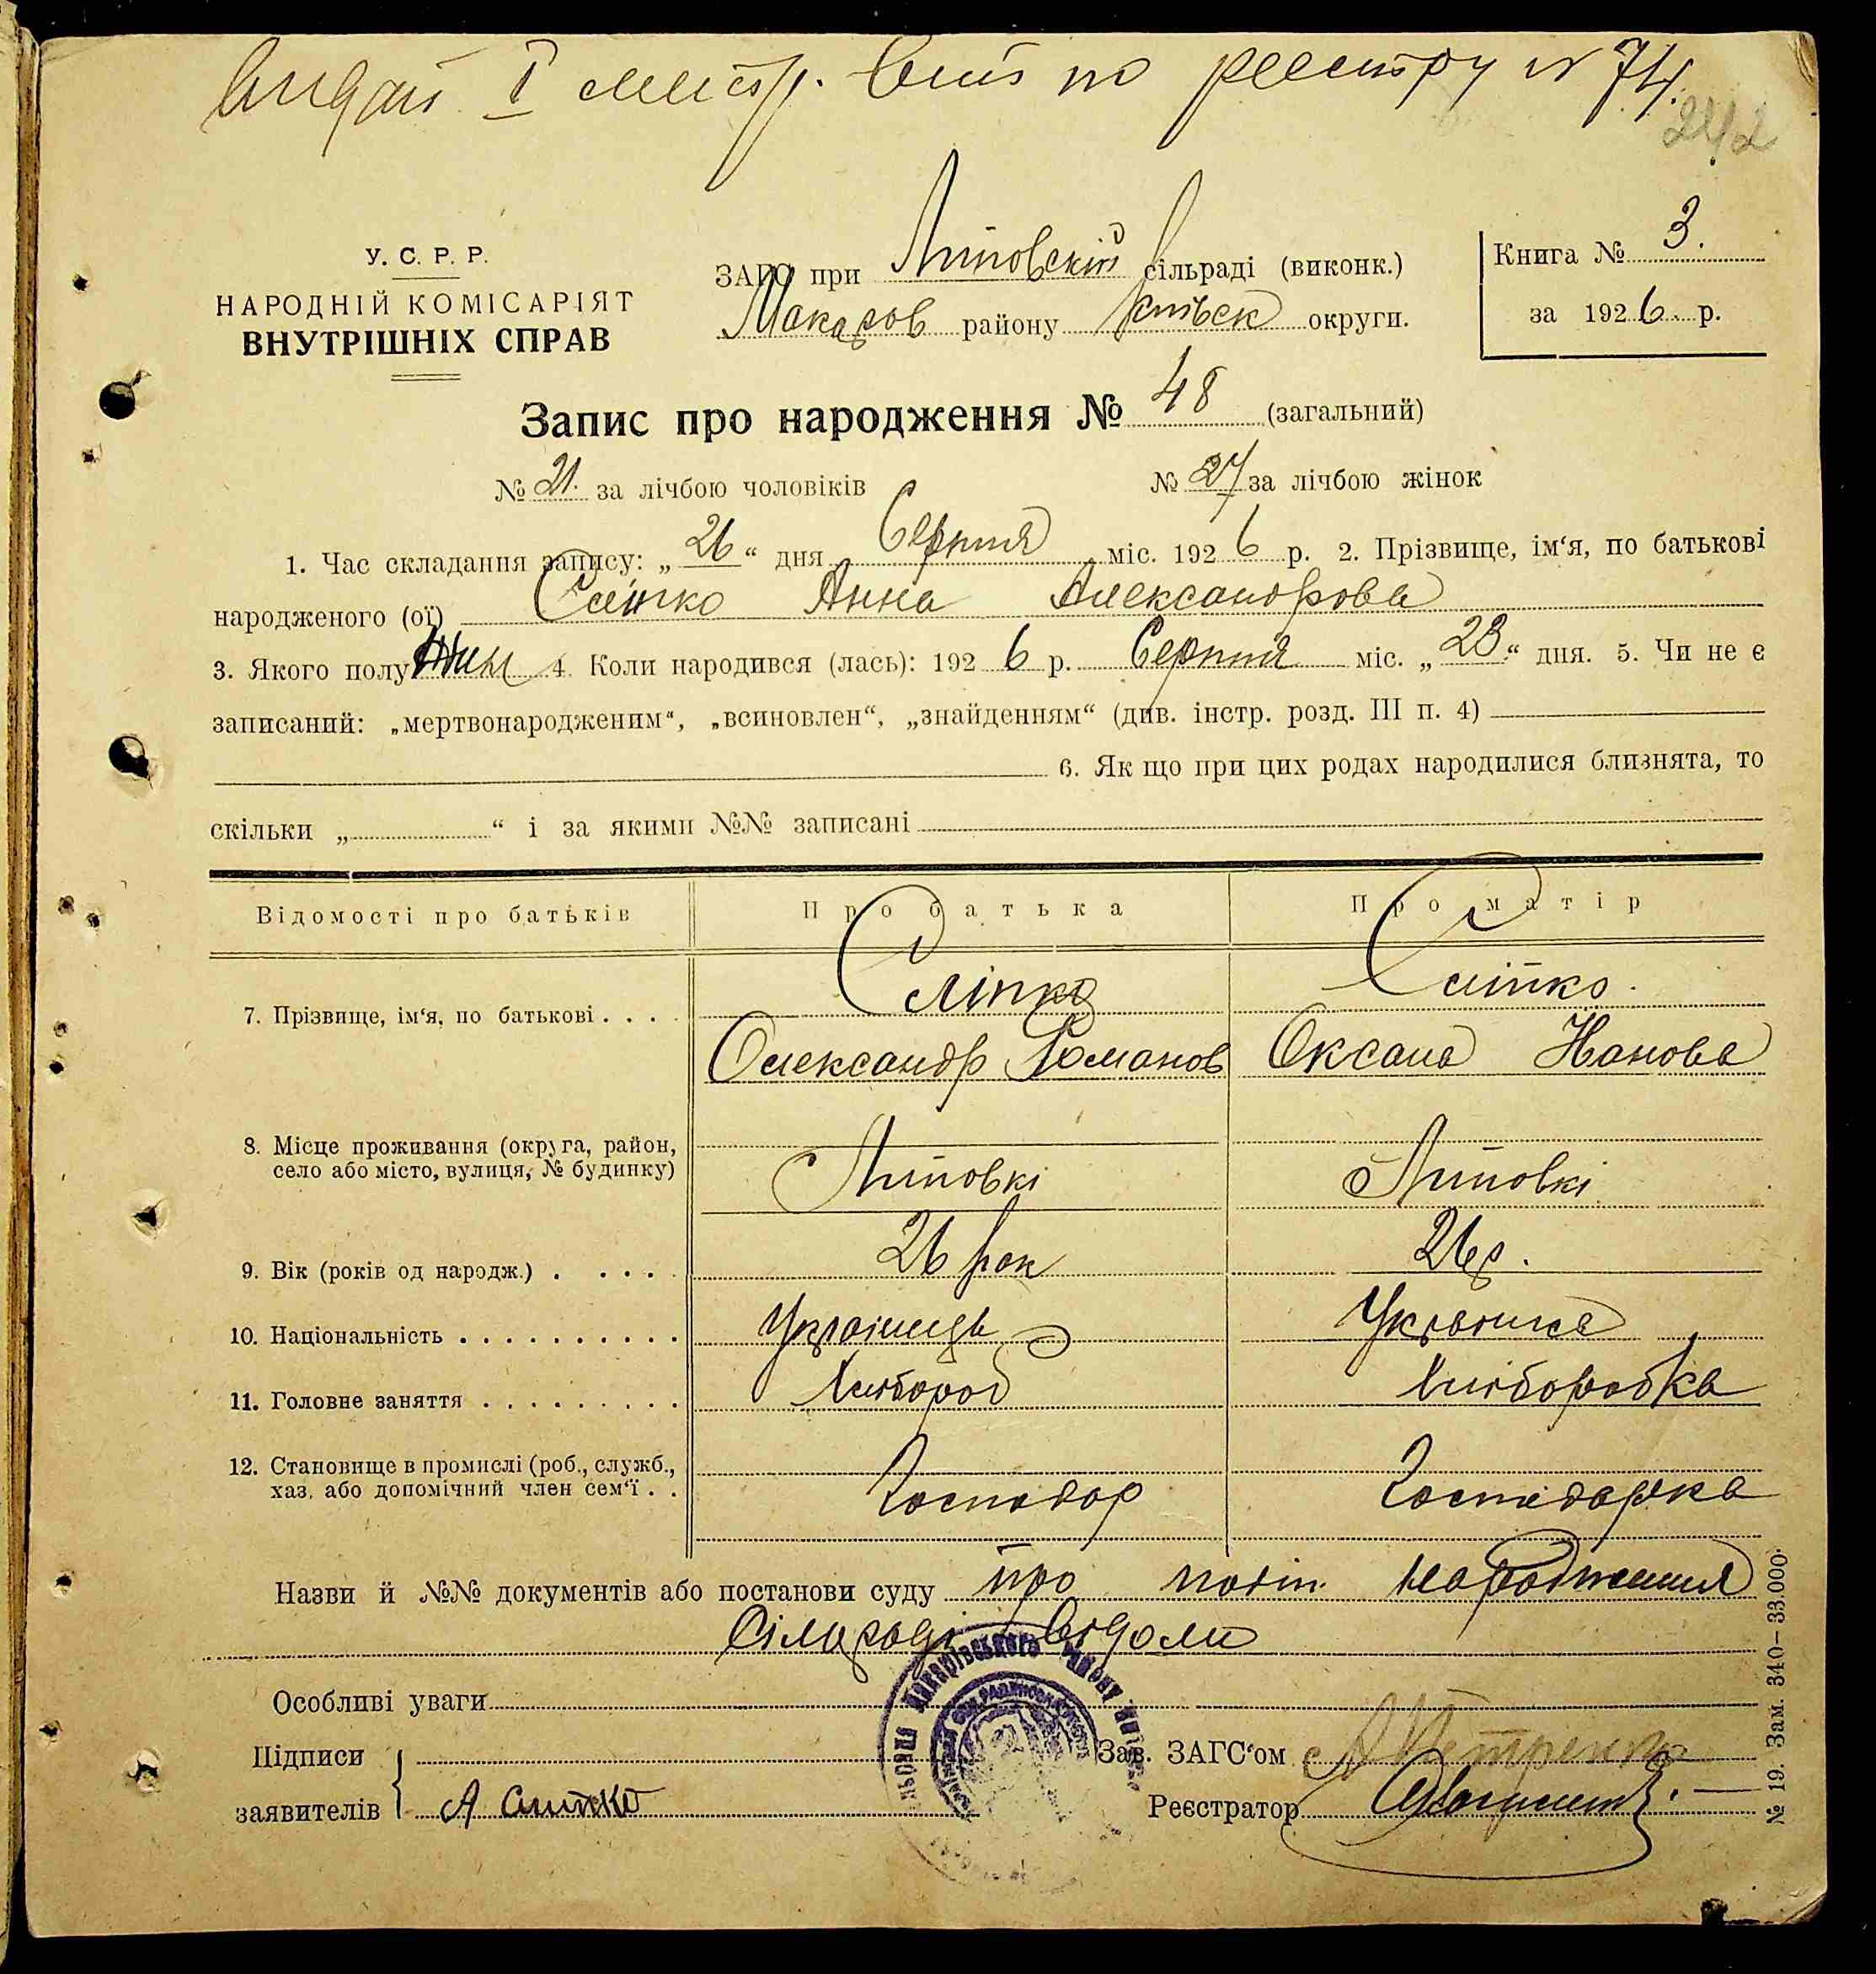 видай I метр. вип по реестру № 74.
242
У. С. Р. Р.
НАРОДНІЙ КОМІСАРІЯТ
ВНУТРІШНІХ СПРАВ
ЗАГС при Липовскій сільраді (виконк.)
Макаров району Київск округи.
Книга № 3.
за 1926. р.
Запис про народження № 48 (загальний)
№ 21. за лічбою чоловіків № 27 за лічбою жінок
1. Час складання запису: „26“ дня Серпня міс. 1926 р. 2. Прізвище, ім‘я, по батькові
народженого (ої) Сліпко Анна Александрова
3. Якого полу Жін 4. Коли народився (лась): 1926 р. Серпня міс. „23“ дня. 5. Чи не є
записаний: „мертвонародженим“, „всиновлен“, „знайденням“ (див. інстр. розд. III п. 4)
6. Як що при цих родах народилися близнята, то
скільки „ “ і за якими №№ записані
Відомості про батьків Про батька Про матір
7. Прізвище, ім‘я, по батькові . . . . Сліпко Сліпко.
Олександр Романов Оксана Іванова
8. Місце проживання (округа, район,
село або місто, вулиця, № будинку) Липовкі Липовкі
9. Вік (років од народж.) . . . . . 26 рок 26 р.
10. Національність . . . . . . . . . . Українець Украинка
11. Головне заняття . . . . . . . . . Хлібороб Хліборобка
12. Становище в промислі (роб., служб.,
хаз. або допомічний член сем‘ї . . Господар Господарка
Назви й №№ документів або постанови суду про народження
Сільраді відоми
Особливі уваги
Підписи
заявителів А Сліпко
Зав. ЗАГС‘ом А Петренко
Реєстратор
№ 19. Зам. 340—33.000.